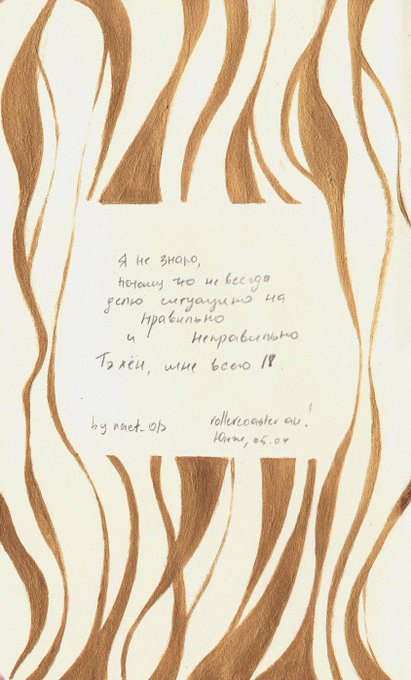 Я не знаю,
потому что не всегда
делю ситуацию на
правильно
и неправильно
Тэхён, мне всего 18.
by naet_
rollercoaster au!
Юнги, 05.04